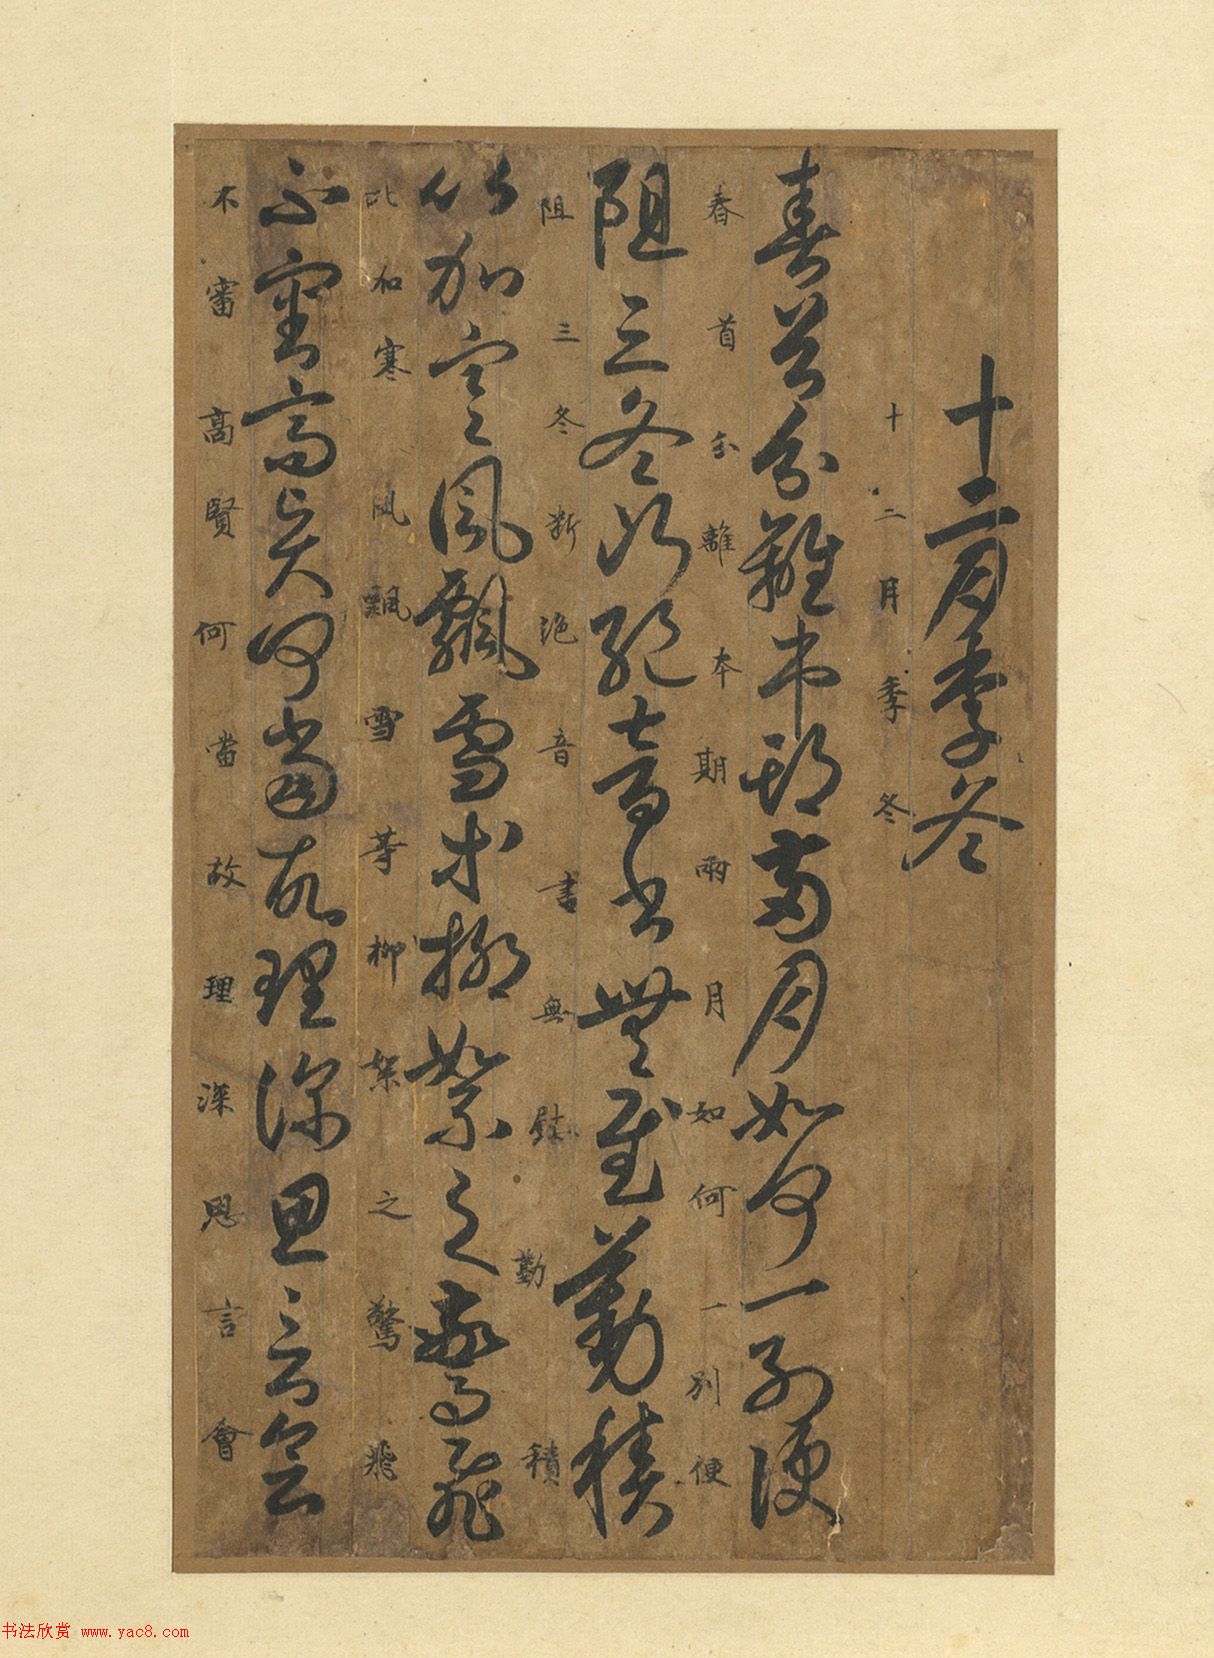 十二月季冬
十二月季冬
春首分離本期兩月如何一別便
春首分離本期兩月如何一別便
阻三冬斷絕音書無慰勤積
阻三冬斷絕音書無慰勤積
比加寒風飄雪等柳絮之驚飛
比加寒風飄雪等柳絮之驚飛
不審高賢何當故理深思言會
不審高賢何當故理深思言會
书法欣赏 www.yac8.com